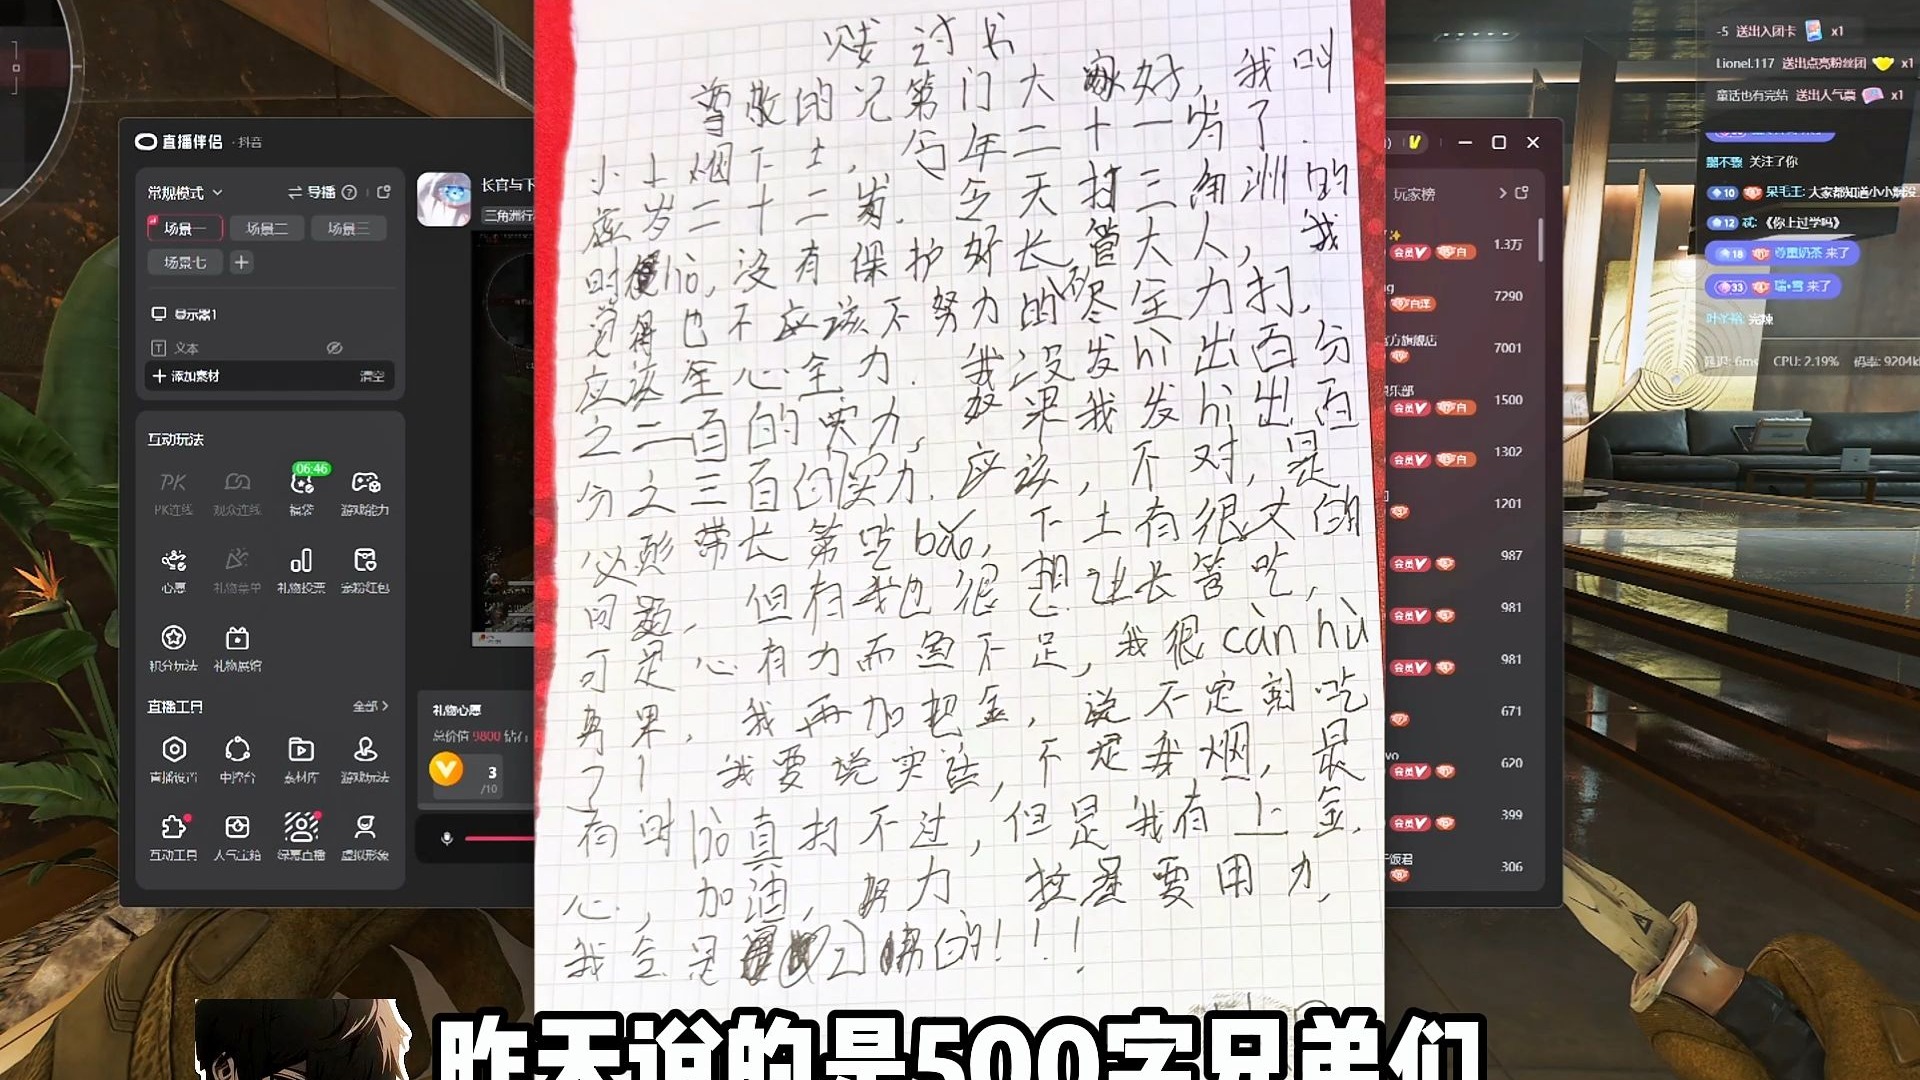 讨书
尊敬的兄第门大家好，我叫
小小烟下士，今年二十一岁了.
虚岁二十二岁. 今天打三角洲的
时hòu，没有保护好长管大人，我
觉得也不应该不努力的不尽全力打，
应该全心全力. 我没发hī出百分
之二百的实力，如果我发hī出百
分之三百的实力. 应该，不对，是
必须带长第吃bào，下士有很大的
问题，但有我也很想让长管吃，
可是心有力而鱼不足，我很càn kuì
我再加把金，说不定就吃
了！我要说实话，不是我烟，是
有时hòu真打不过，但是我有上金
心，加油，努力，拉屎要用力，
我会是
的！！！
昨天说的是500字兄弟们
直播伴侣 · 抖音
常规模式
导播
场景一
场景二
场景三
场景七
显示器1
文本
添加素材
清空
互动玩法
PK
PK连线
观众连线
06:46
福袋
游戏能力
心愿
礼物菜单
礼物投票
宠粉红包
积分玩法
礼物展馆
直播工具
全部
直播设置
中控台
素材库
游戏玩法
互动工具
人气宝箱
绿幕直播
虚拟形象
长官与下
三角洲行
礼物心愿
总价值 9800 钻
3
/10
玩家榜
1.3万
7290
官方旗舰店
7001
俱乐部
1500
1302
1201
987
981
981
671
620
399
饭君
306
会员
白
-5 送出入团卡 x1
Lionel.117 送出点亮粉丝团 x1
童话也有完结 送出人气票 x1
关注了你
10 呆毛王: 大家都知道小小烟没
12 《你上过学吗》
18 尊重奶茶 来了
33 瑞•雪 来了
完辣
延迟: 6ms CPU: 2.19% 码率: 9204k